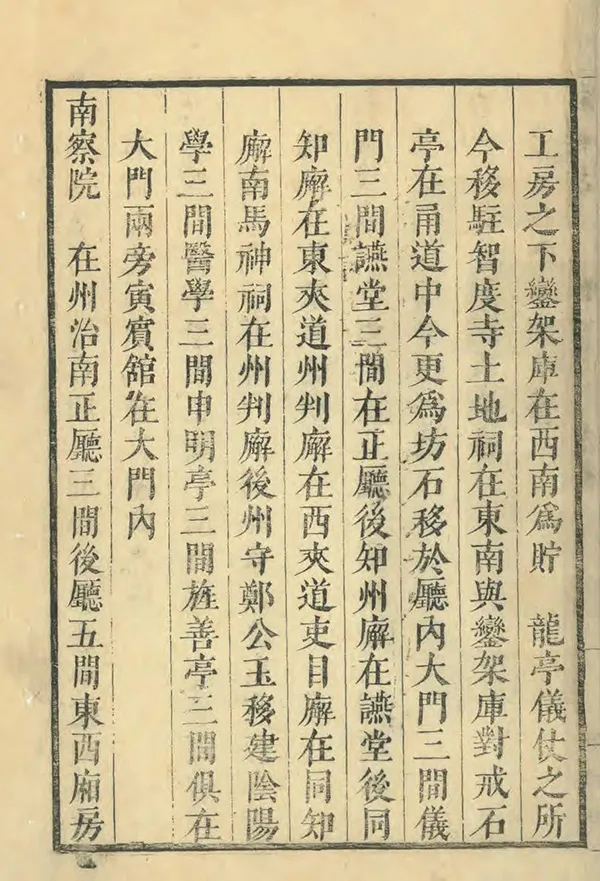 工房之下鑾架庫在西南爲貯　龍亭儀仗之所
今移駐智度寺土地祠在東南與鑾架庫對戒石
亭在甬道中今更爲坊石移於廳內大門三間儀
門三間讌堂三間在正廳後知州廨在讌堂後同
知廨在東夾道州判廨在西夾道吏目廨在同知
廨南馬神祠在州判廨後州守鄭公玉移建陰陽
學三間醫學三間申明亭三間旌善亭三間俱在
大門兩旁寅賓館在大門內
南察院　在州治南正廳三間後廳五間東西廂房